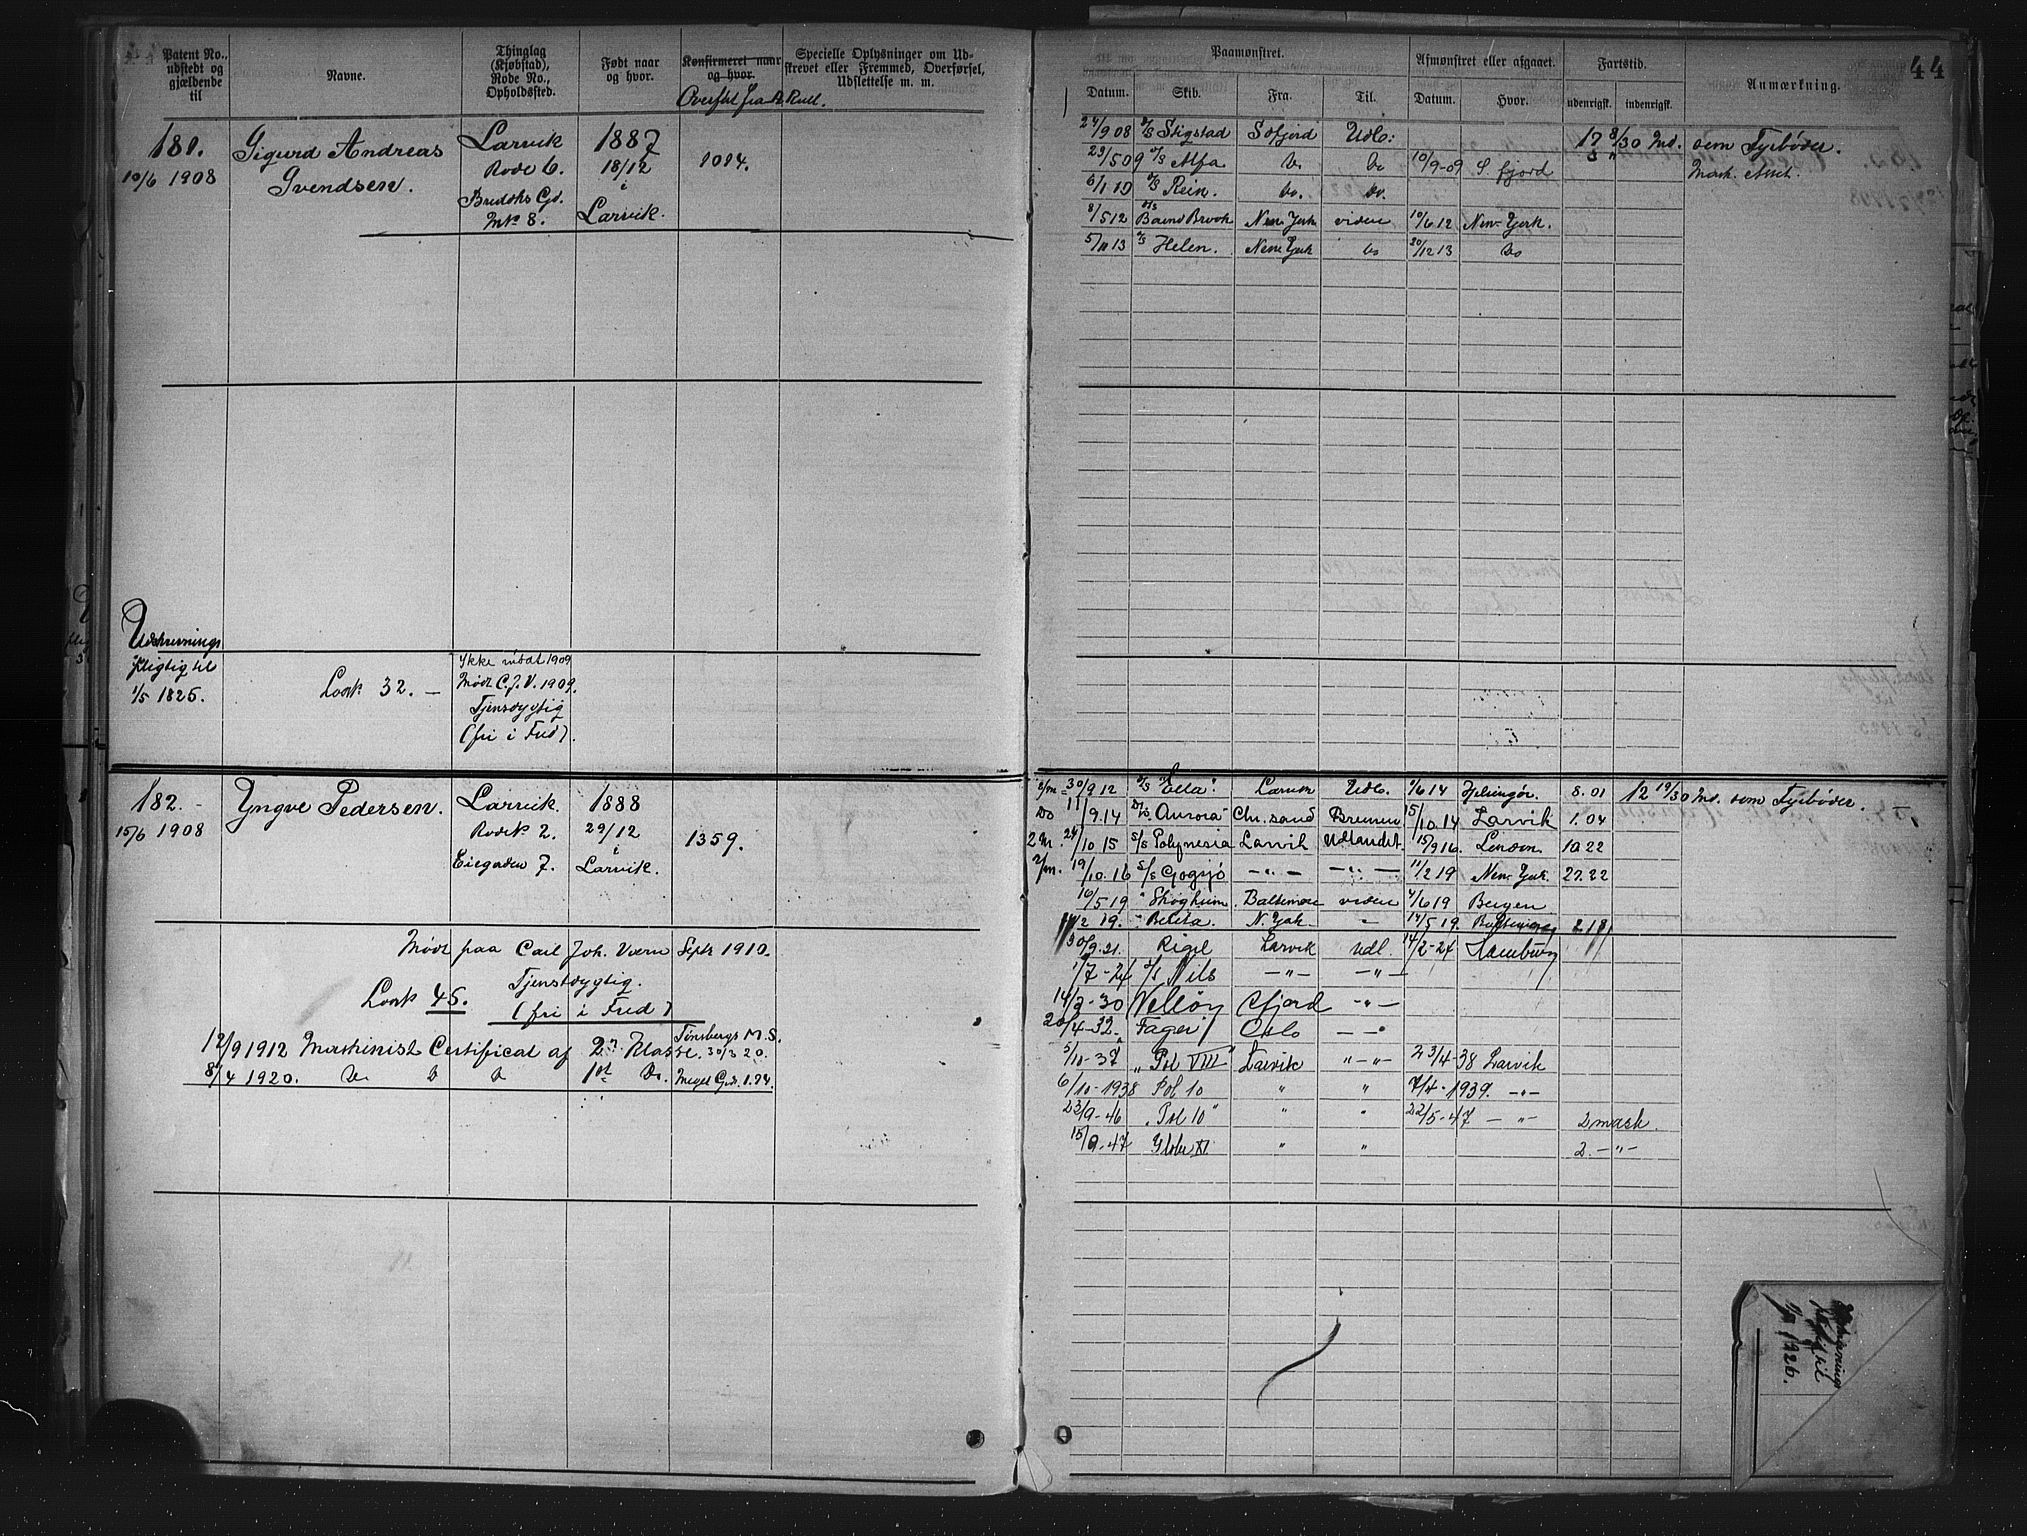 Patent No., udstedt og gjældende til
Navne.
Thinglag (Kjøbstad), Rode No., Opholdssted.
Født naar og hvor.
Konfirmeret naar og hvor.
Specielle Oplysninger om Udskrevet eller Fremmed, Overførsel, Udslettelse m. m.
Overført fra A. Rull.
181.
10/6 1908
Sigurd Andreas
Svendsen.
Larvik
Rode 6.
Mtr 8.
1887
18/12
i
Larvik.
1014.
Udskrivnings
pligtig til
1/5 1826.
32. —
Ikke mødt 1909
Mødt C.J.V. 1909.
Tjenstdygtig
(fri i Fred).
182. -
15/6 1908
Yngve Pedersen.
Larvik.
Rode 2.
Eiegaden 7.
1888
29/12
i
Larvik.
1359.
Mødt paa Carl Joh. Værn Septr 1910.
Tjenstdygtig.
45.
(fri i Fred)
12/9 1912 Maskinist Certificat af 2n Klasse. Tønsbergs M.S. 30/3 20.
8/4 1920. Do Do Do 1st Do.
44
Paamønstret.
Afmønstret eller afgaaet.
Fartstid.
Anmærkning.
Datum. Skib. Fra. Til. Datum. Hvor. udenrigsk. indenrigsk.
24/9 08 D/S Stigstad Søfjord Udl: 17 8/30 Md. som Fyrbøder.
29/5 09 D/S Alfa Do Do 10/9-09 S. fjord 3 " Mask. Assist.
6/1 10 D/S Rein. Do. Do.
8/5 12 D/S Bound Brook New York videre 10/6 12 New-York.
5/11 13 D/S Helen. New York Do 20/12 13 Do
30/9 12 D/S "Ella" Larvik Udl. 1/6 14 Helsingør. 8.01 12 19/30 Md. som Fyrbøder.
Do 11/9.14 D/S Aurora Chr.sand Bremen 5/10.14 Larvik 1.04
2 M. 24/10 15 S/S Polynesia Larvik Udlandet 15/9 16. London 10.22
2/m. 19/10.16 S/S Gogsjø — " — — " — 11/2 19 New York. 27.22
10/5-19 " Skogheim. Baltimore videre 4/6 19 Bergen
11/2 19. " Belita. N. York " 14/5 19.
30/9.21. Rigel Larvik Udl. 14/2-24 Hamburg
1/7-24 D/S Nils — " — — " —
14/2-30 Nelløy Cfjord — " —
20/4-32. "Fager" Oslo — " —
5/10-37 "Pol VIII" Larvik " — " — 23/4-38 Larvik
6/10-1938 Pol 10 " " 7/4-1939. — " —
23/9-46 "Pol 10" " " 22/5-47 — " — 2 mask.
15/9-47 Globe XI " " 2. — " —
Udskrivnings
pligtig til
1926.